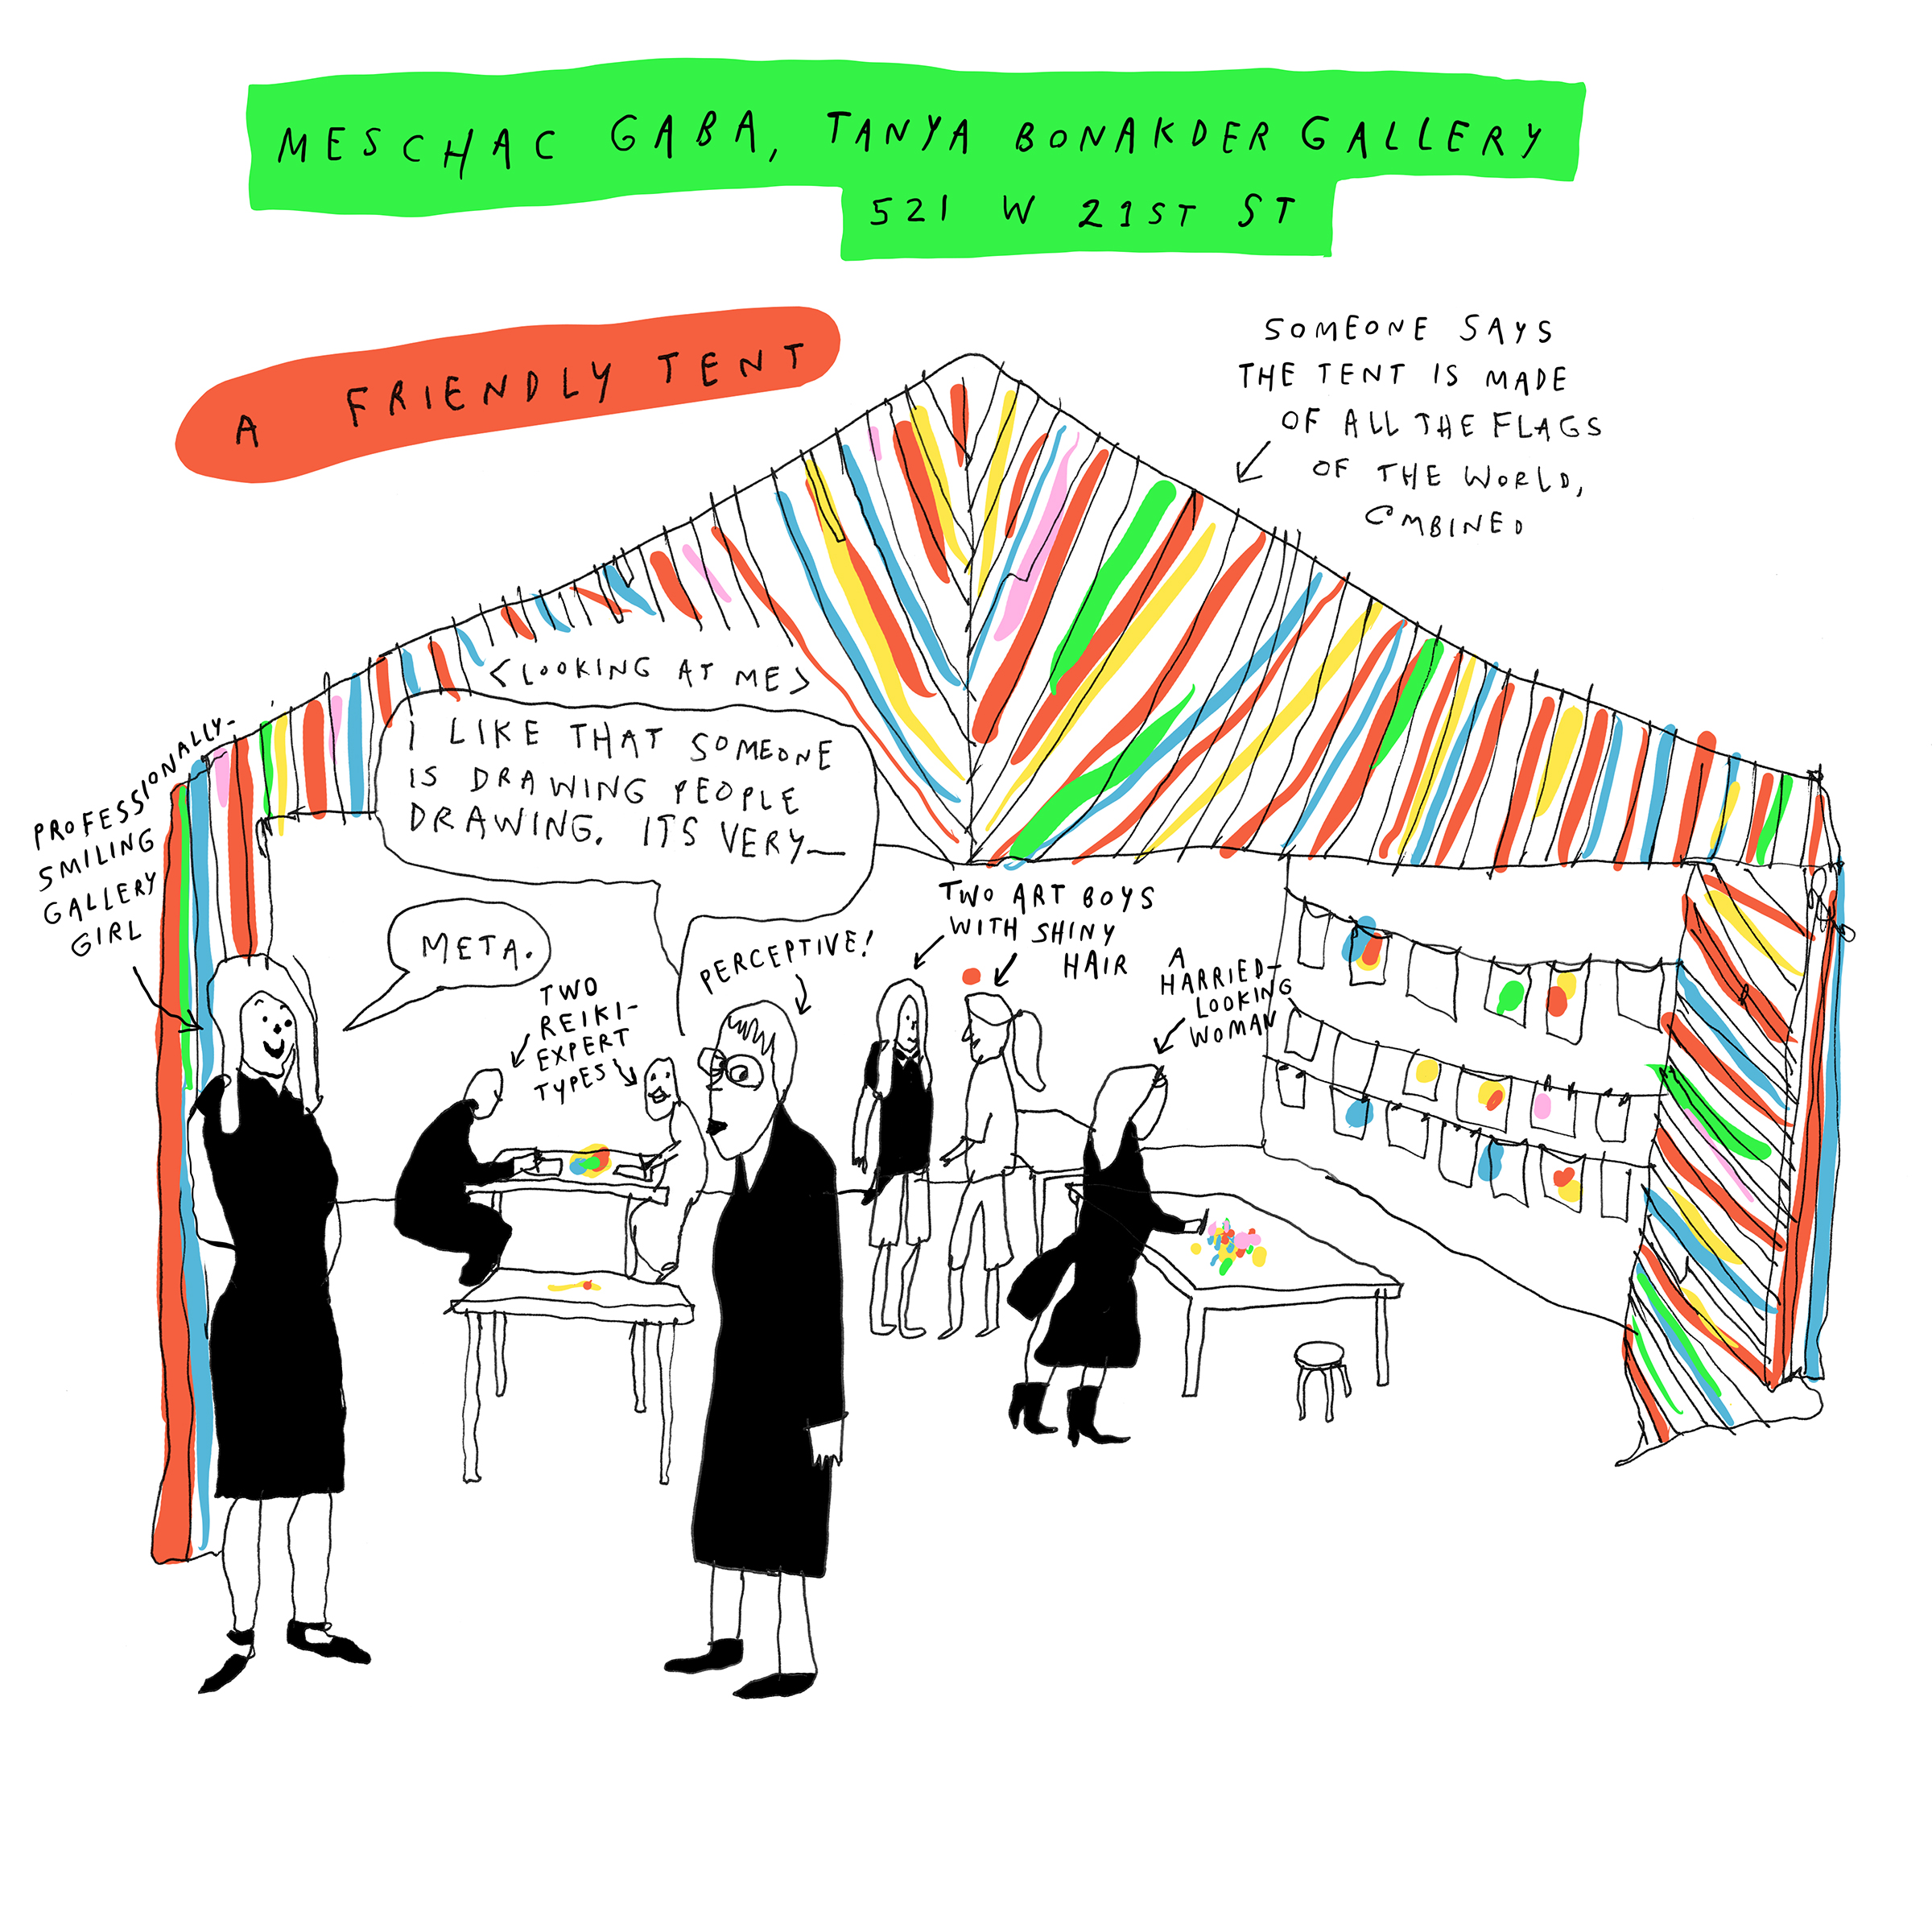 MESCHAC GABA, TANYA BONAKDER GALLERY
521 W 21ST ST
A FRIENDLY TENT
SOMEONE SAYS
THE TENT IS MADE
OF ALL THE FLAGS
OF THE WORLD,
COMBINED
<LOOKING AT ME>
I LIKE THAT SOMEONE
IS DRAWING PEOPLE
DRAWING. ITS VERY—
PROFESSIONALLY-
SMILING
GALLERY
GIRL
META.
PERCEPTIVE!
TWO
REIKI-
EXPERT
TYPES
TWO ART BOYS
WITH SHINY
HAIR
A
HARRIED-
LOOKING
WOMAN